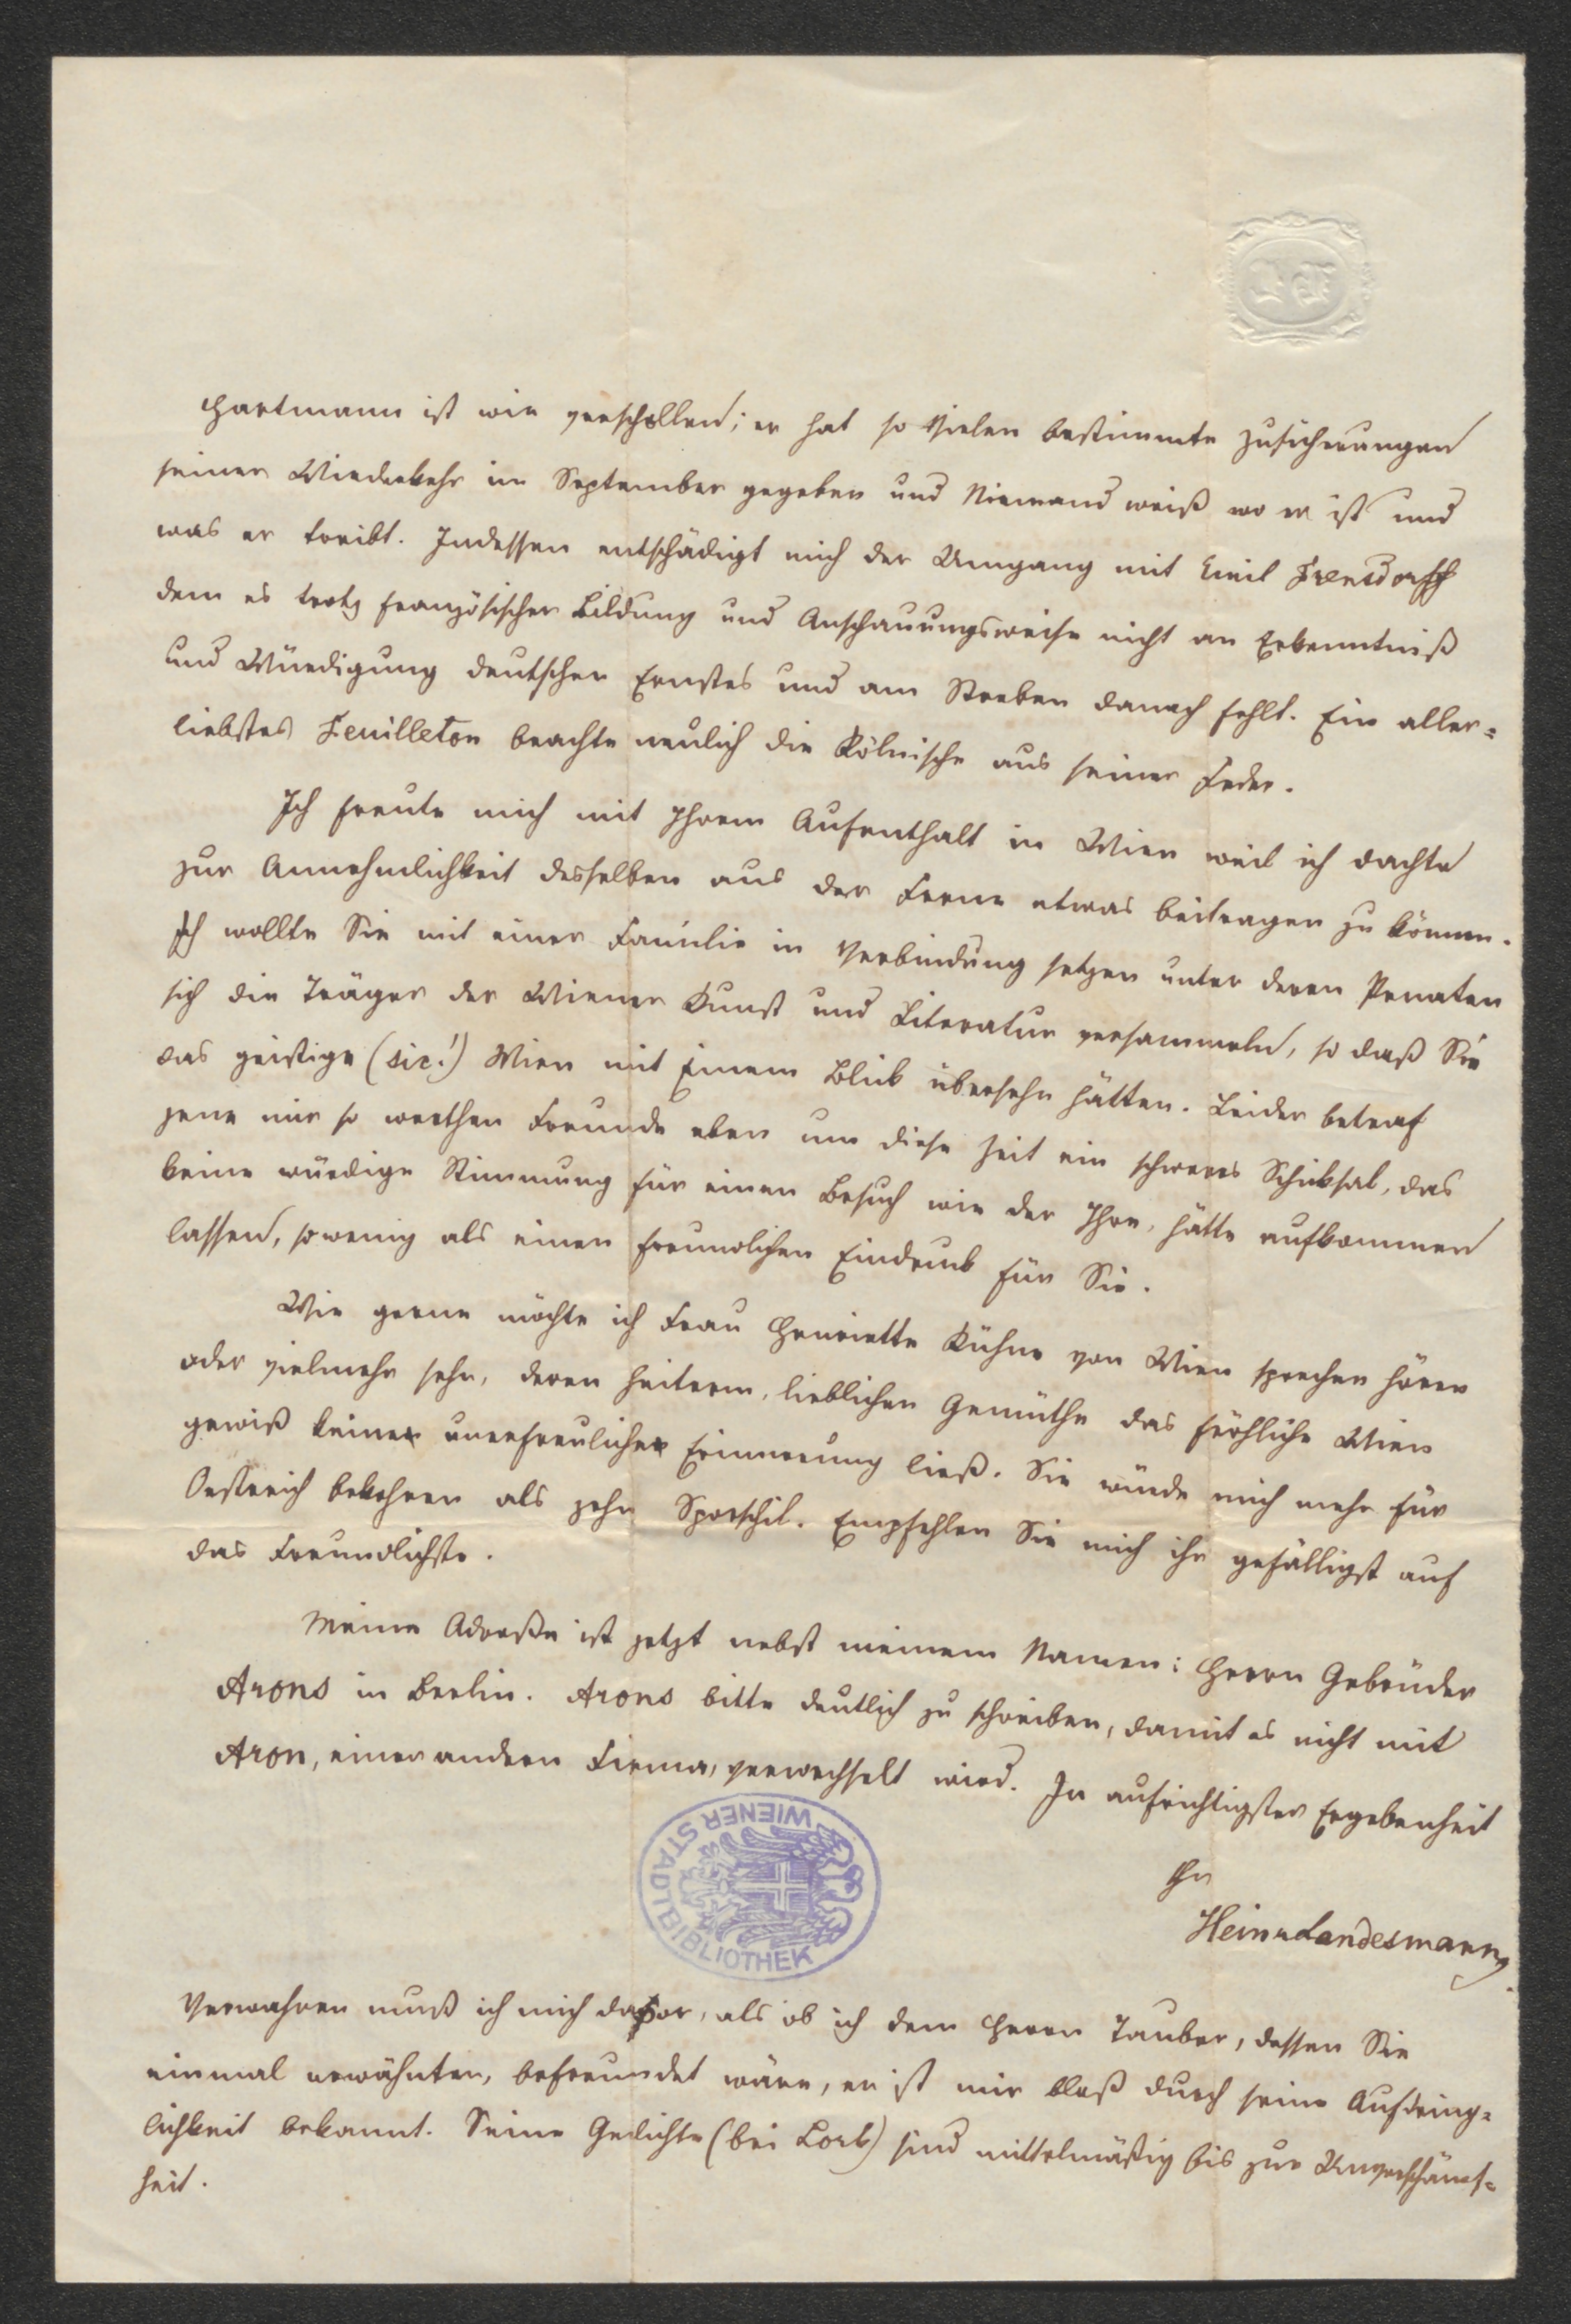 Hartmann ist wie verschollen; er hat so Vielen bestimmte Zusicherungen
seiner Wiederkehr im September gegeben und Niemand weiß wo er ist und
was er treibt. Indessen entschädigt mich der Umgang mit Emil Frensdorff
dem es trotz französischer Bildung und Anschauungsweise nicht an Erkenntniß
und Würdigung deutschen Ernstes und am Streben danach fehlt. Ein aller=
liebstes Feuilleton brachte neulich die Kölnische aus seiner Feder.
Ich freute mich mit Ihrem Aufenthalt in Wien weil ich dachte
zur Annehmlichkeit desselben aus der Ferne etwas beitragen zu können.
Ich wollte Sie mit einer Familie in Verbindung setzen unter deren Penaten
sich die Träger der Wiener Kunst und Literatur versammeln, so daß Sie
das geistige (sic!) Wien mit Einem Blick übersehn hätten. Leider betraf
jene mir so werthen Freunde eben um diese Zeit ein schweres Schicksal, das
keine würdige Stimmung für einen Besuch wie der Ihre, hätte aufkommen
lassen, so wenig als einen freundlichen Eindruck für Sie.
Wie gerne möchte ich Frau Henriette Kühne von Wien sprechen hören
oder vielmehr sehn, deren heiterm, lieblichen Gemüthe das fröhliche Wien
gewiß keine unerfreuliche Erinnerung ließ. Sie würde mich mehr für
Oestreich bekehren als zehn Sporschil. Empfehlen Sie mich ihr gefälligst auf
das Freundlichste.
Meine Adreße ist jetzt nebst meinem Namen: Herrn Gebrüder
Arons in Berlin. Arons bitte deutlich zu schreiben, damit es nicht mit
Aron, einer andern Firma, verwechselt wird. In aufrichtigster Ergebenheit
Ihr
Heinr Landesmann.
WIENER STADTBIBLIOTHEK
Verwahren muß ich mich davor, als ob ich dem Herrn Tauber, dessen Sie
einmal erwähnten, befreundet wäre, er ist mir bloß durch seine Aufdring=
lichkeit bekannt. Seine Gedichte (bei Lork) sind mittelmäßig bis zur Unverschämt=
heit.